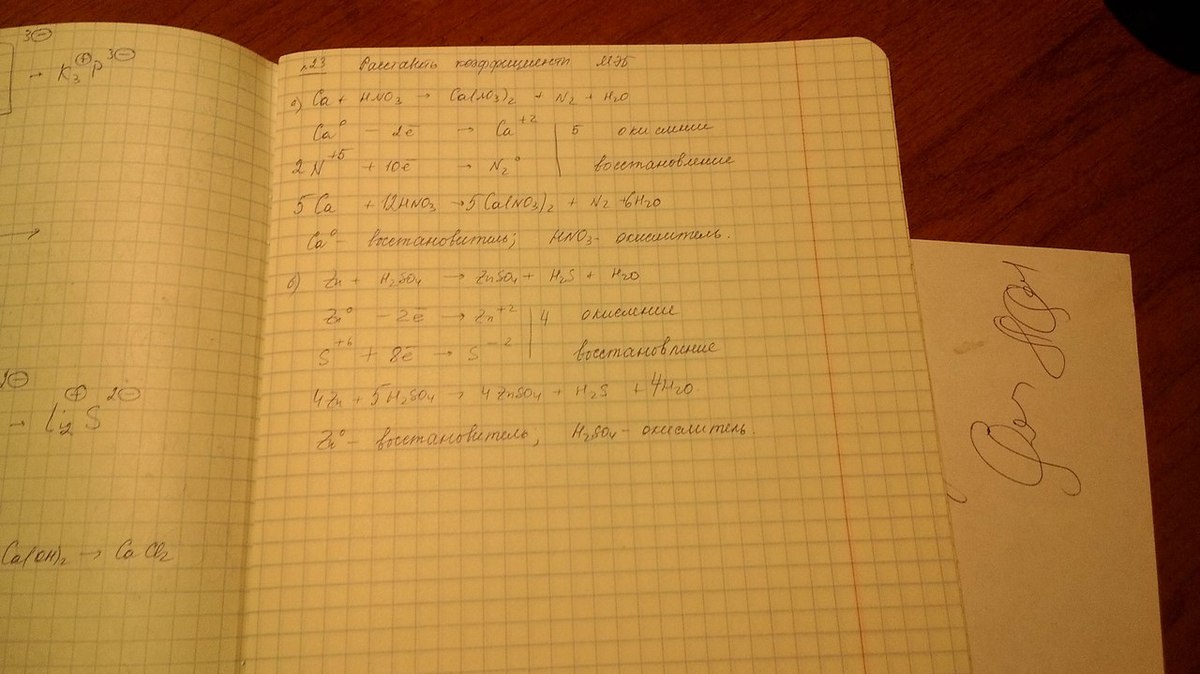 3⊖
→ K₃⊕P³⊖
1⊖
→ Li₂⊕S²⊖
Ca(OH)₂ → CaCl₂
Расставить коэффициенты МЭБ
а) Ca + HNO₃ → Ca(NO₃)₂ + N₂ + H₂O
Ca⁰ − 2ē → Ca⁺² | 5 окисление
2N⁺⁵ + 10ē → N₂⁰ | восстановление
5Ca + 12HNO₃ → 5Ca(NO₃)₂ + N₂ + 6H₂O
Ca⁰ – восстановитель; HNO₃ – окислитель.
б) Zn + H₂SO₄ → ZnSO₄ + H₂S + H₂O
Zn⁰ − 2ē → Zn⁺² | 4 окисление
S⁺⁶ + 8ē → S⁻² | восстановление
4Zn + 5H₂SO₄ → 4ZnSO₄ + H₂S + 4H₂O
Zn⁰ – восстановитель, H₂SO₄ – окислитель.